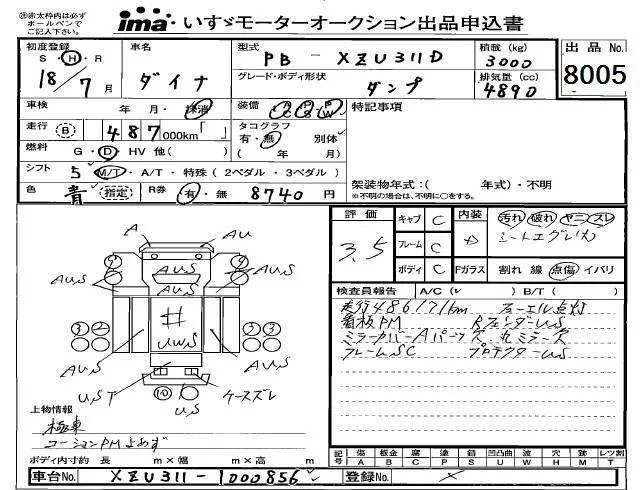 ㊟赤太枠内は必ず
ボールペンで
ご記入下さい。
ima いすゞモーターオークション出品申込書
初度登録 車名 型式 PB - XZU311D 積載 (kg) 3000 出品 No. 8005
S・H・R 18/7月 ダイナ グレード・ボディ形状 ダンプ 排気量 (cc) 4890
車検 年 月・抹消 装備 A/C P/S P/W 特記事項
走行 B 487,000km「 」 タコグラフ 有・無 別体
燃料 G・D・HV 他( ) ( 年 月)
シフト 5 M/T・A/T・特殊(2ペダル・3ペダル)
色 青 指定 R券 有・無 8740円
架装物年式:( 年式)・不明
※不明の場合は、不明に○をする。
評価 3.5 キャブ C 内装 D 汚れ 破れ ヤニ スレ
フレーム C シートエグレ
ボディ C Fガラス 割れ 線 点傷 イバリ
検査員報告 A/C (レ ) B/T ( )
走行486171km フューエル点灯
看板PM RフェンダーU.S
ミラーカバーAパーツ欠
フレームSC プロテクターU.S
A AU
A,U,S A,U,S A,U,S
A,U,S
#
UW,S
3 2 3 3
A,U,S A,U,S
U,S T ケースズレ
10
U,S
上物情報
極東
コーションPM
ボディ内寸約 長 m×幅 m×高 m
記号 傷 A 板金 B 腐 C 塗 P 錆 S 凹凸曲 U 波 W 穴 H 熱 M レツ割 T
車台No. XZU311-1000856 登録No.